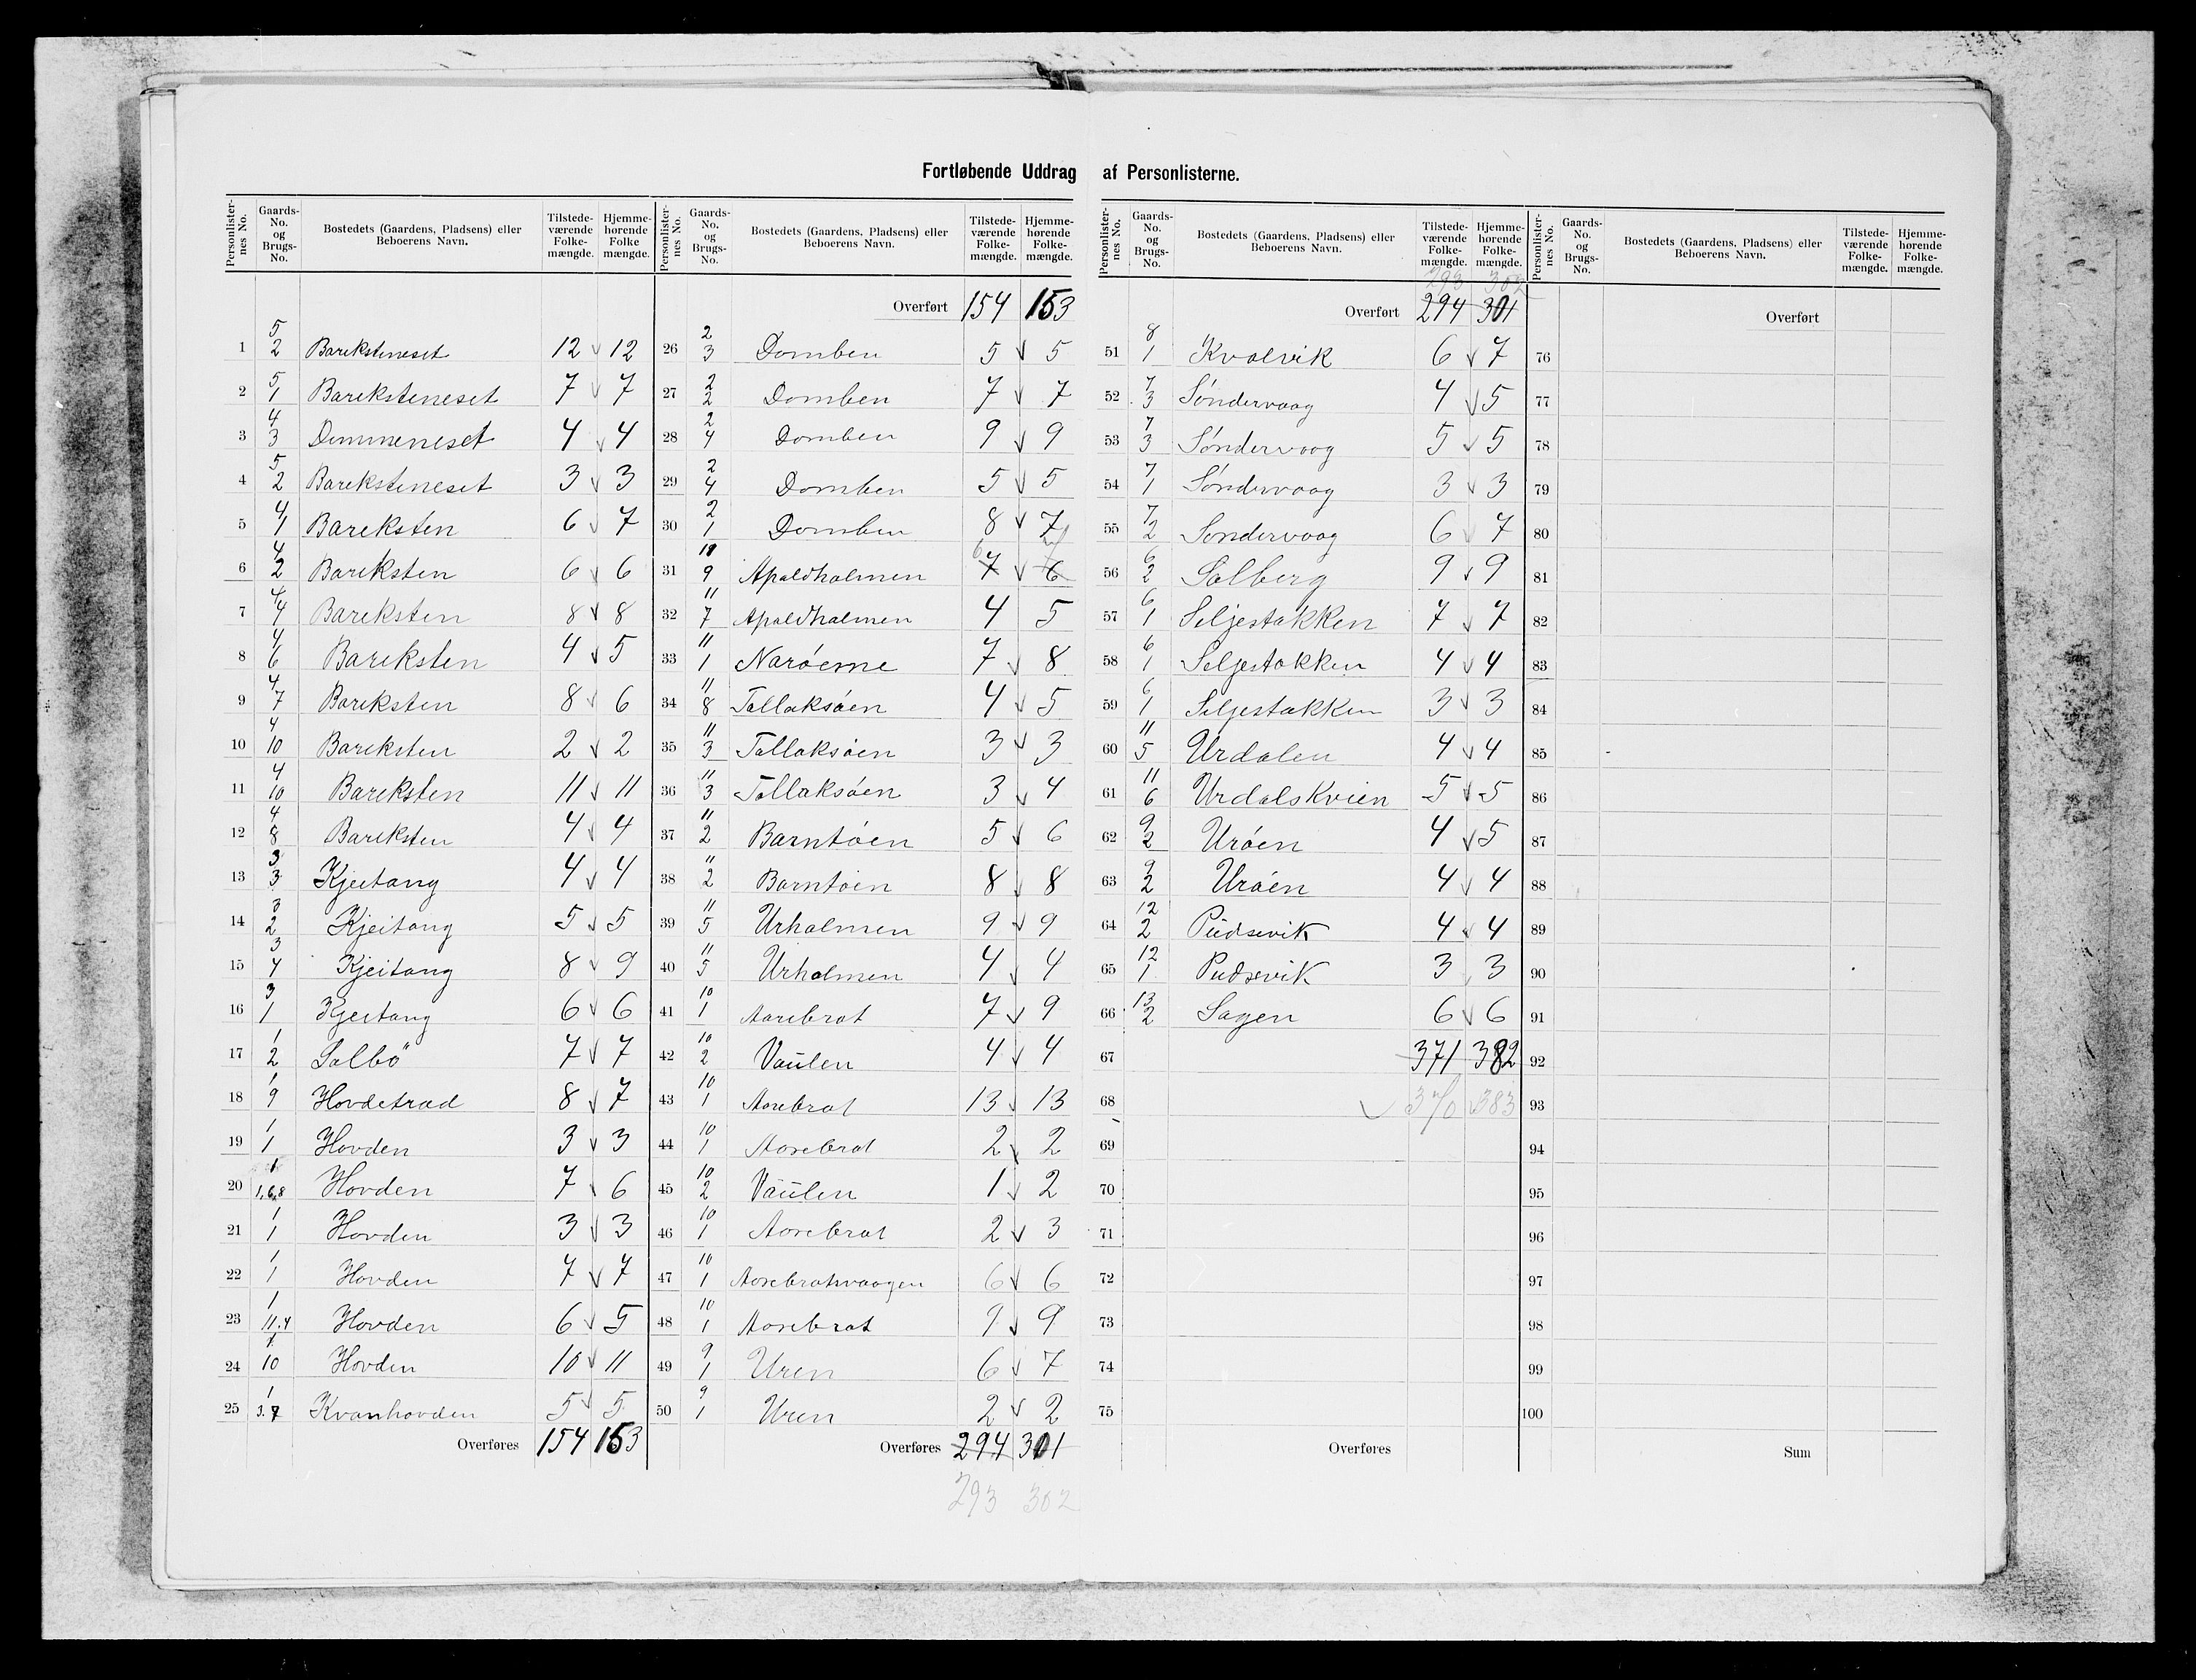 Fortløbende Uddrag af Personlisterne.
Personlisternes No. Gaards-No. og Brugs-No. Bostedets (Gaardens, Pladsens) eller Beboerens Navn. Tilstedeværende Folkemængde. Hjemmehørende Folke mængde.
1 5/2 Bareksteneset 12 12
2 5/1 Bareksteneset 7 7
3 4/3 Demmeneset 4 4
4 5/2 Bareksteneset 3 3
5 4/1 Bareksten 6 7
6 4/2 Bareksten 6 6
7 4/4 Bareksten 8 8
8 4/6 Bareksten 4 5
9 4/7 Bareksten 8 6
10 4/10 Bareksten 2 2
11 4/10 Bareksten 11 11
12 4/8 Bareksten 4 4
13 3/3 Kjeitang 4 4
14 3/2 Kjeitang 5 5
15 3/4 Kjeitang 8 9
16 3/1 Kjeitang 6 6
17 1/2 Solbö 7 7
18 1/9 Hovdetrad 8 7
19 1/1 Hovden 3 3
20 1/1,6,8 Hovden 7 6
21 1/1 Hovden 3 3
22 1/1 Hovden 7 7
23 1/11.4 Hovden 6 5
24 1/10 Hovden 10 11
25 1/3.7 Kvanhovden 5 5
Overføres 154 153
Personlisternes No. Gaards-No. og Brugs-No. Bostedets (Gaardens, Pladsens) eller Beboerens Navn. Tilstedeværende Folkemængde. Hjemmehørende Folkemængde.
Overført 154 153
26 2/3 Domben 5 5
27 2/2 Domben 7 7
28 2/4 Domben 9 9
29 2/4 Domben 5 5
30 2/1 Domben 8 7
31 10/9 Apaldholmen 6 7 7 6
32 11/7 Apaldholmen 4 5
33 11/1 Narøerne 7 8
34 11/8 Tollaksøen 4 5
35 11/3 Tollaksøen 3 3
36 11/3 Tollaksøen 3 4
37 11/2 Barntøen 5 6
38 11/2 Barntøen 8 8
39 11/5 Urholmen 9 9
40 11/5 Urholmen 4 4
41 10/1 Aarebrot 7 9
42 10/2 Vaulen 4 4
43 10/1 Aarebrot 13 13
44 10/1 Aarebrot 2 2
45 10/2 Vaulen 1 2
46 10/1 Aarebrot 2 3
47 10/1 Aarebrotvaagen 6 6
48 10/1 Aarebrot 9 9
49 9/1 Uren 6 7
50 9/1 Uren 2 2
Overføres 294 301
293 302
Personlisternes No. Gaards-No. og Brugs-No. Bostedets (Gaardens, Pladsens) eller Beboerens Navn. Tilstedeværende Folkemængde. Hjemmehørende Folkemængde.
293 302
Overført 294 301
51 8/1 Kvalvik 6 7
52 7/3 Søndervaag 4 5
53 7/3 Søndervaag 5 5
54 7/1 Søndervaag 3 3
55 7/2 Søndervaag 6 7
56 6/2 Solberg 9 9
57 6/1 Seljestokken 7 7
58 6/1 Seljestokken 4 4
59 6/1 Seljestokken 3 3
60 11/5 Urdalen 4 4
61 11/6 Urdalskvien 5 5
62 9/2 Urøen 4 5
63 9/2 Urøen 4 4
64 12/2 Pudsevik 4 4
65 12/1 Pudsevik 3 3
66 13/2 Sagen 6 6
67 371 382
68 370 383
69
70
71
72
73
74
75
Overføres
Personlisternes No. Gaards-No. og Brugs-No. Bostedets (Gaardens, Pladsens) eller Beboerens Navn. Tilstedeværende Folkemængde. Hjemmehørende Folkemængde.
Overført
76
77
78
79
80
81
82
83
84
85
86
87
88
89
90
91
92
93
94
95
96
97
98
99
100
Sum